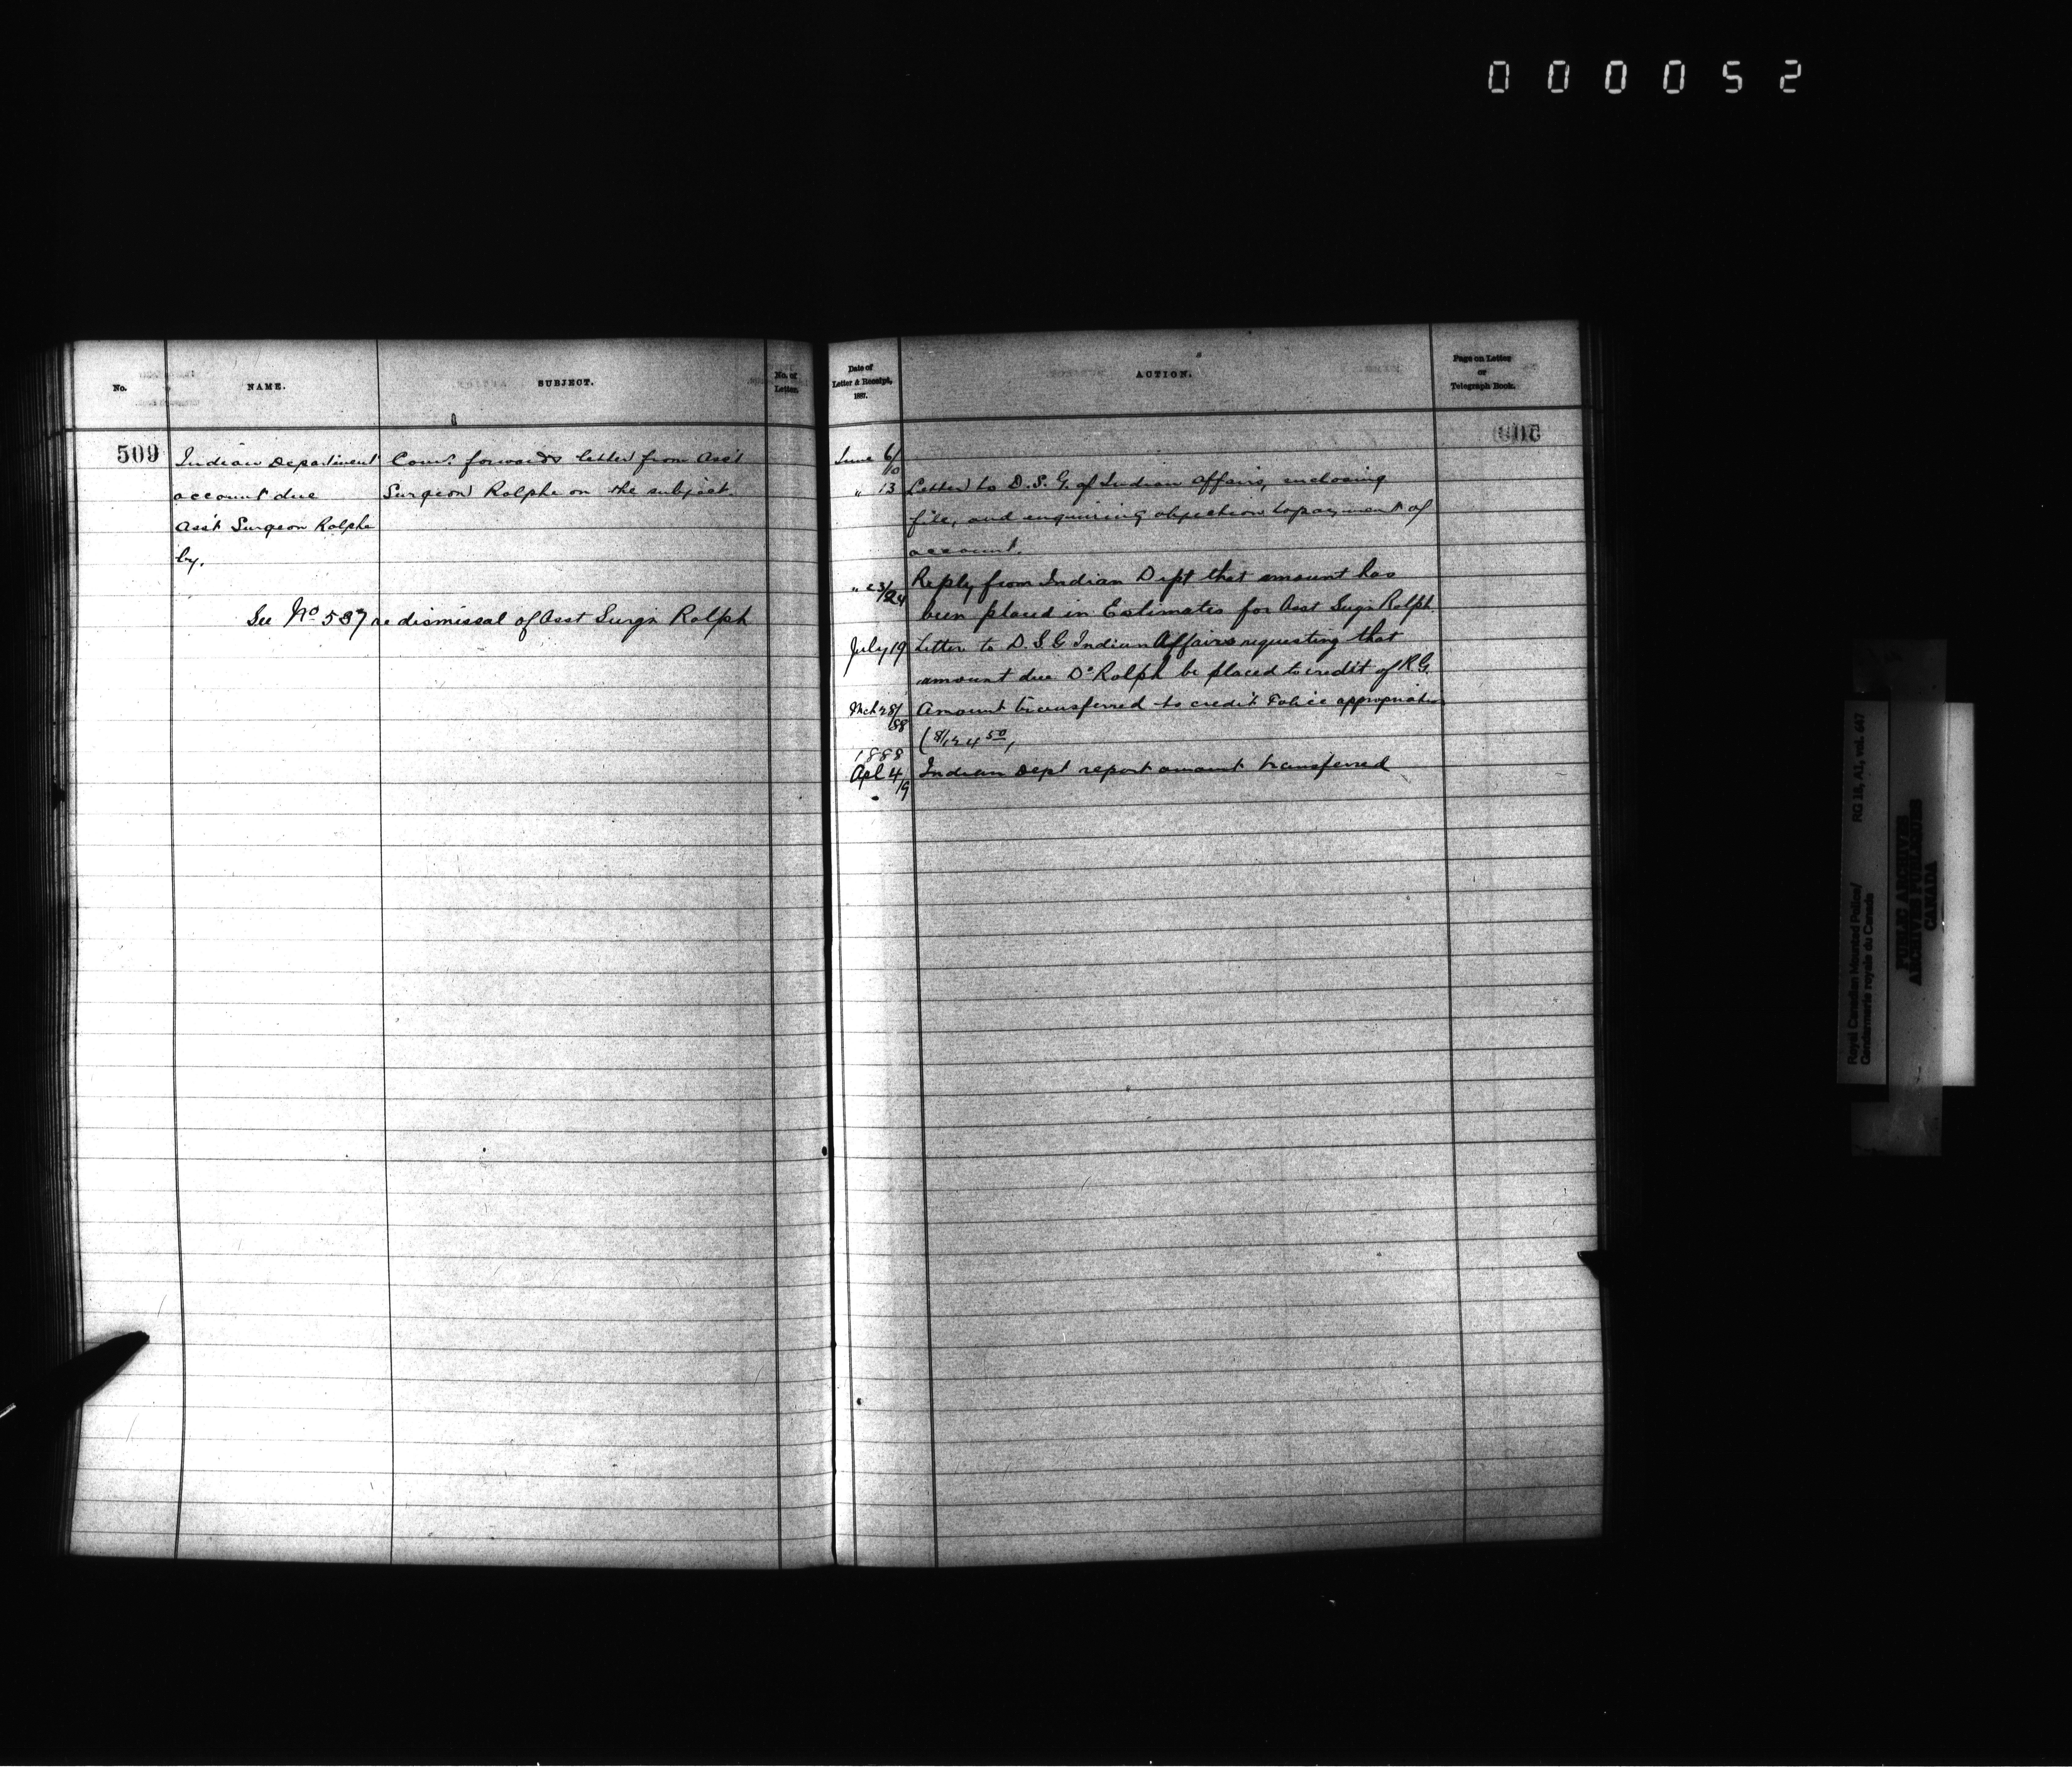 000052
No.
NAME.
SUBJECT.
No. of
Letter.
509
Indian Department
account due
Ass't Surgeon Rolphe
by.
Com'r. forwards letter from Ass't
Surgeon Rolphe on the subject.
See No 537 re dismissal of Asst Surgn Rolph
Date of
Letter & Receipt,
1887.
ACTION.
Page on Letter
or
Telegraph Book.
June 6/10
" 13 Letter to D.S.G. of Indian Affairs, enclosing
file, and enquiring objection to payment of
account.
" 23/24 Reply from Indian Dept that amount has
been placed in Estimates for Asst Surgn Rolph
July 19 Letter to D.S.G Indian Affairs requesting that
amount due Dr Rolph be placed to credit of R.G.
Mch 28/88 Amount transferred to credit Police appropriation
1888
Apl 4/19 Indian Dept report amount transferred
Royal Canadian Mounted Police/
Gendarmerie royale du Canada
RG 18, A1, vol. 647
PUBLIC ARCHIVES
ARCHIVES PUBLIQUES
CANADA